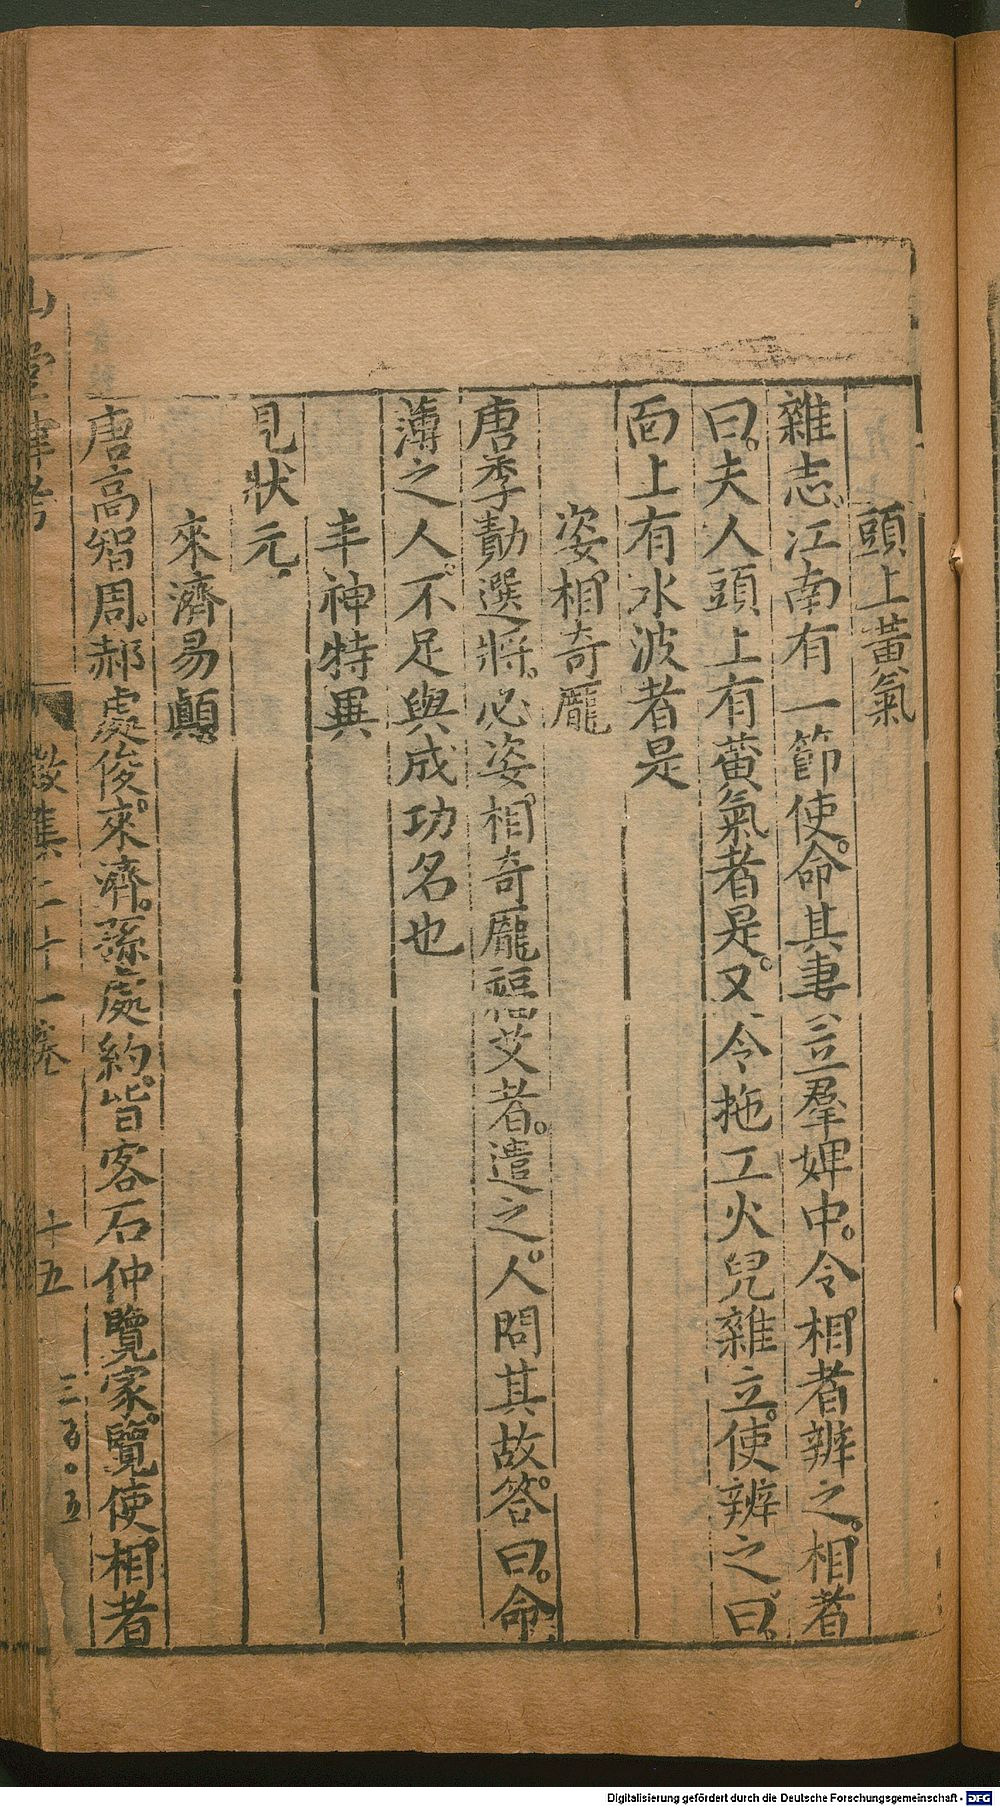 頭上黃氣
雜志江南有一節使。命其妻立羣婢中。令相者辨之。相者
曰。夫人頭上有黃氣者是。又令拖工火兒雜立。使辨之。曰。
面上有水波者是
姿相奇龐
唐李勣選將。必姿相奇龐福艾者。遣之。人問其故。答曰。命
薄之人。不足與成功名也
丰神特異
見狀元
來濟昜顛
唐高智周。郝處俊。來濟。孫處約。皆客石仲覽家。覽使相者
山堂肆考
徵集二十一卷
十五
三百〇五
Digitalisierung gefördert durch die Deutsche Forschungsgemeinschaft - DFG